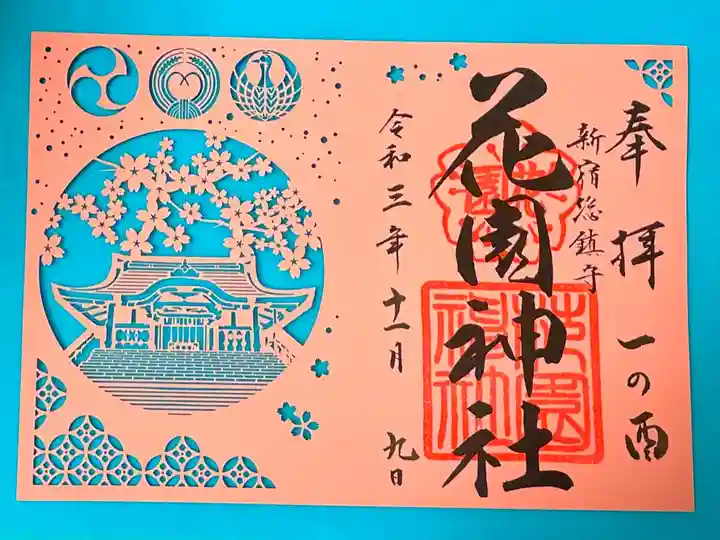 奉拝 一の酉
新宿総鎮守
花園神社
令和三年十一月 九日